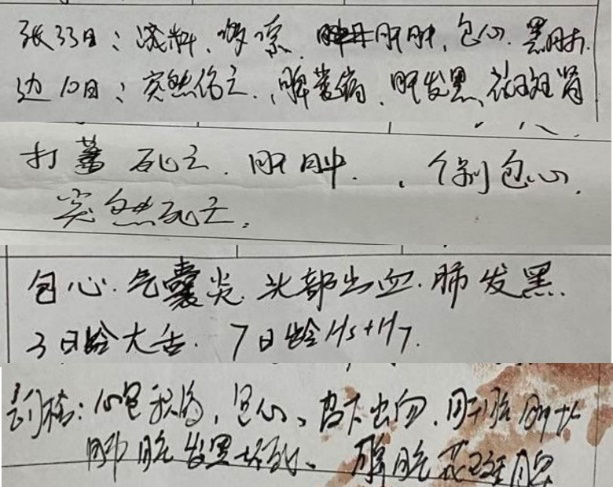 张33日：浇料、咳嗽、肝肿、包心、黑肺.
边10日：突然伤亡、脾萎缩、肝发黑、花斑肾
打蔫 死亡、肝肿、个别包心.
突然死亡.
包心.气囊炎.头部出血.肺发黑.
3日龄大舌. 7日龄H5+H7.
剖检：心包积液、包心、皮下出血、肝脏肿大
肺脏发黑坏死、脾脏花斑脾